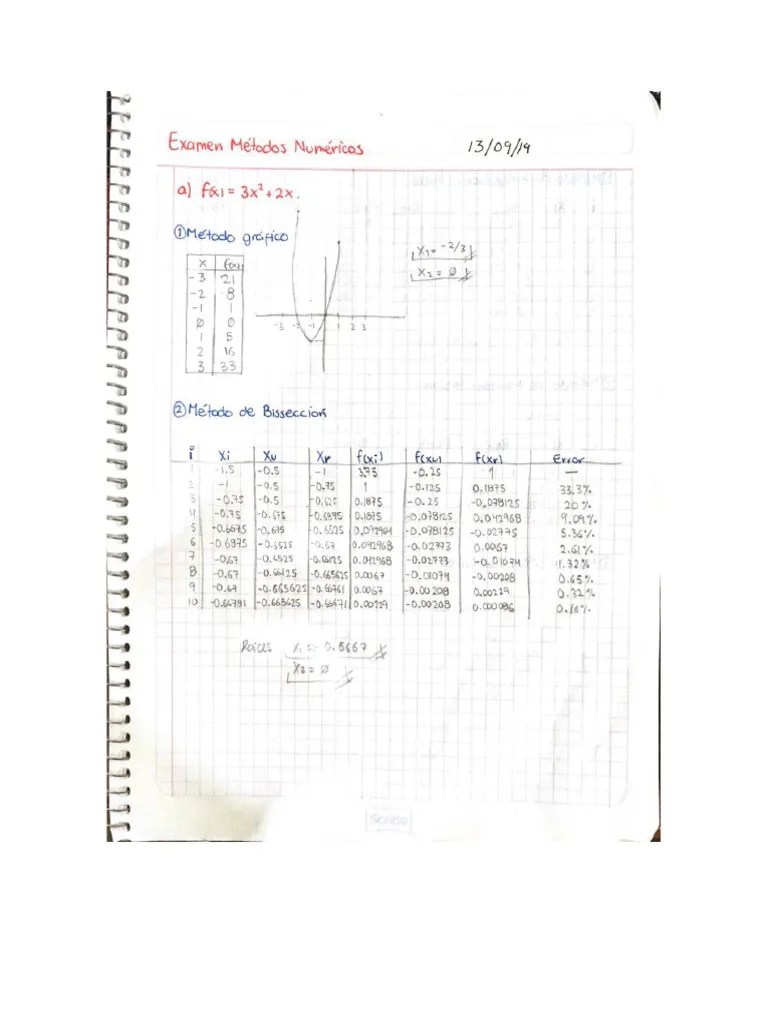 Examen Métodos Numéricos 13/09/19
a) f(x) = 3x² + 2x.
① Método gráfico
x f(x)
-3 21
-2 8
-1 1
Ø 0
1 5
2 16
3 33
x₁ = -2/3
x₂ = Ø
-3 -2 -1 1 2 3
② Método de Bisseccion
i Xi Xu Xr f(xi) f(xu) f(xr) Error
1 -1.5 -0.5 -1 3.75 -0.25 1 —
2 -1 -0.5 -0.75 1 -0.125 0.1875 33.3%
3 -0.75 -0.5 -0.625 0.1875 -0.25 -0.078125 20%
4 -0.75 -0.675 -0.6875 0.1875 -0.078125 0.042968 9.09%
5 -0.6675 -0.675 -0.6525 -0.078125 -0.02775 5.36%
6 -0.6975 -0.6525 -0.67 0.042968 -0.02773 0.0067 2.61%
7 -0.67 -0.6525 -0.66125 0.042968 -0.02773 -0.01074 1.32%
8 -0.67 -0.66125 -0.665625 0.0067 -0.01074 -0.00208 0.65%
9 -0.67 -0.665625 -0.66761 0.0067 -0.00208 0.00229 0.32%
10 -0.66781 -0.665625 -0.66671 0.00229 -0.00208 0.000086 0.16%
Raíces X₁ = -0.6667
X₂ = Ø